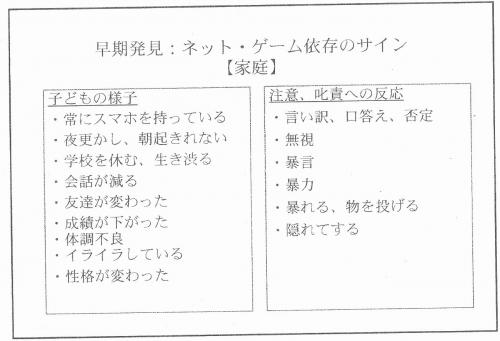 早期発見：ネット・ゲーム依存のサイン
【家庭】
子どもの様子
・常にスマホを持っている
・夜更かし、朝起きれない
・学校を休む、生き渋る
・会話が減る
・友達が変わった
・成績が下がった
・体調不良
・イライラしている
・性格が変わった
注意、叱責への反応
・言い訳、口答え、否定
・無視
・暴言
・暴力
・暴れる、物を投げる
・隠れてする